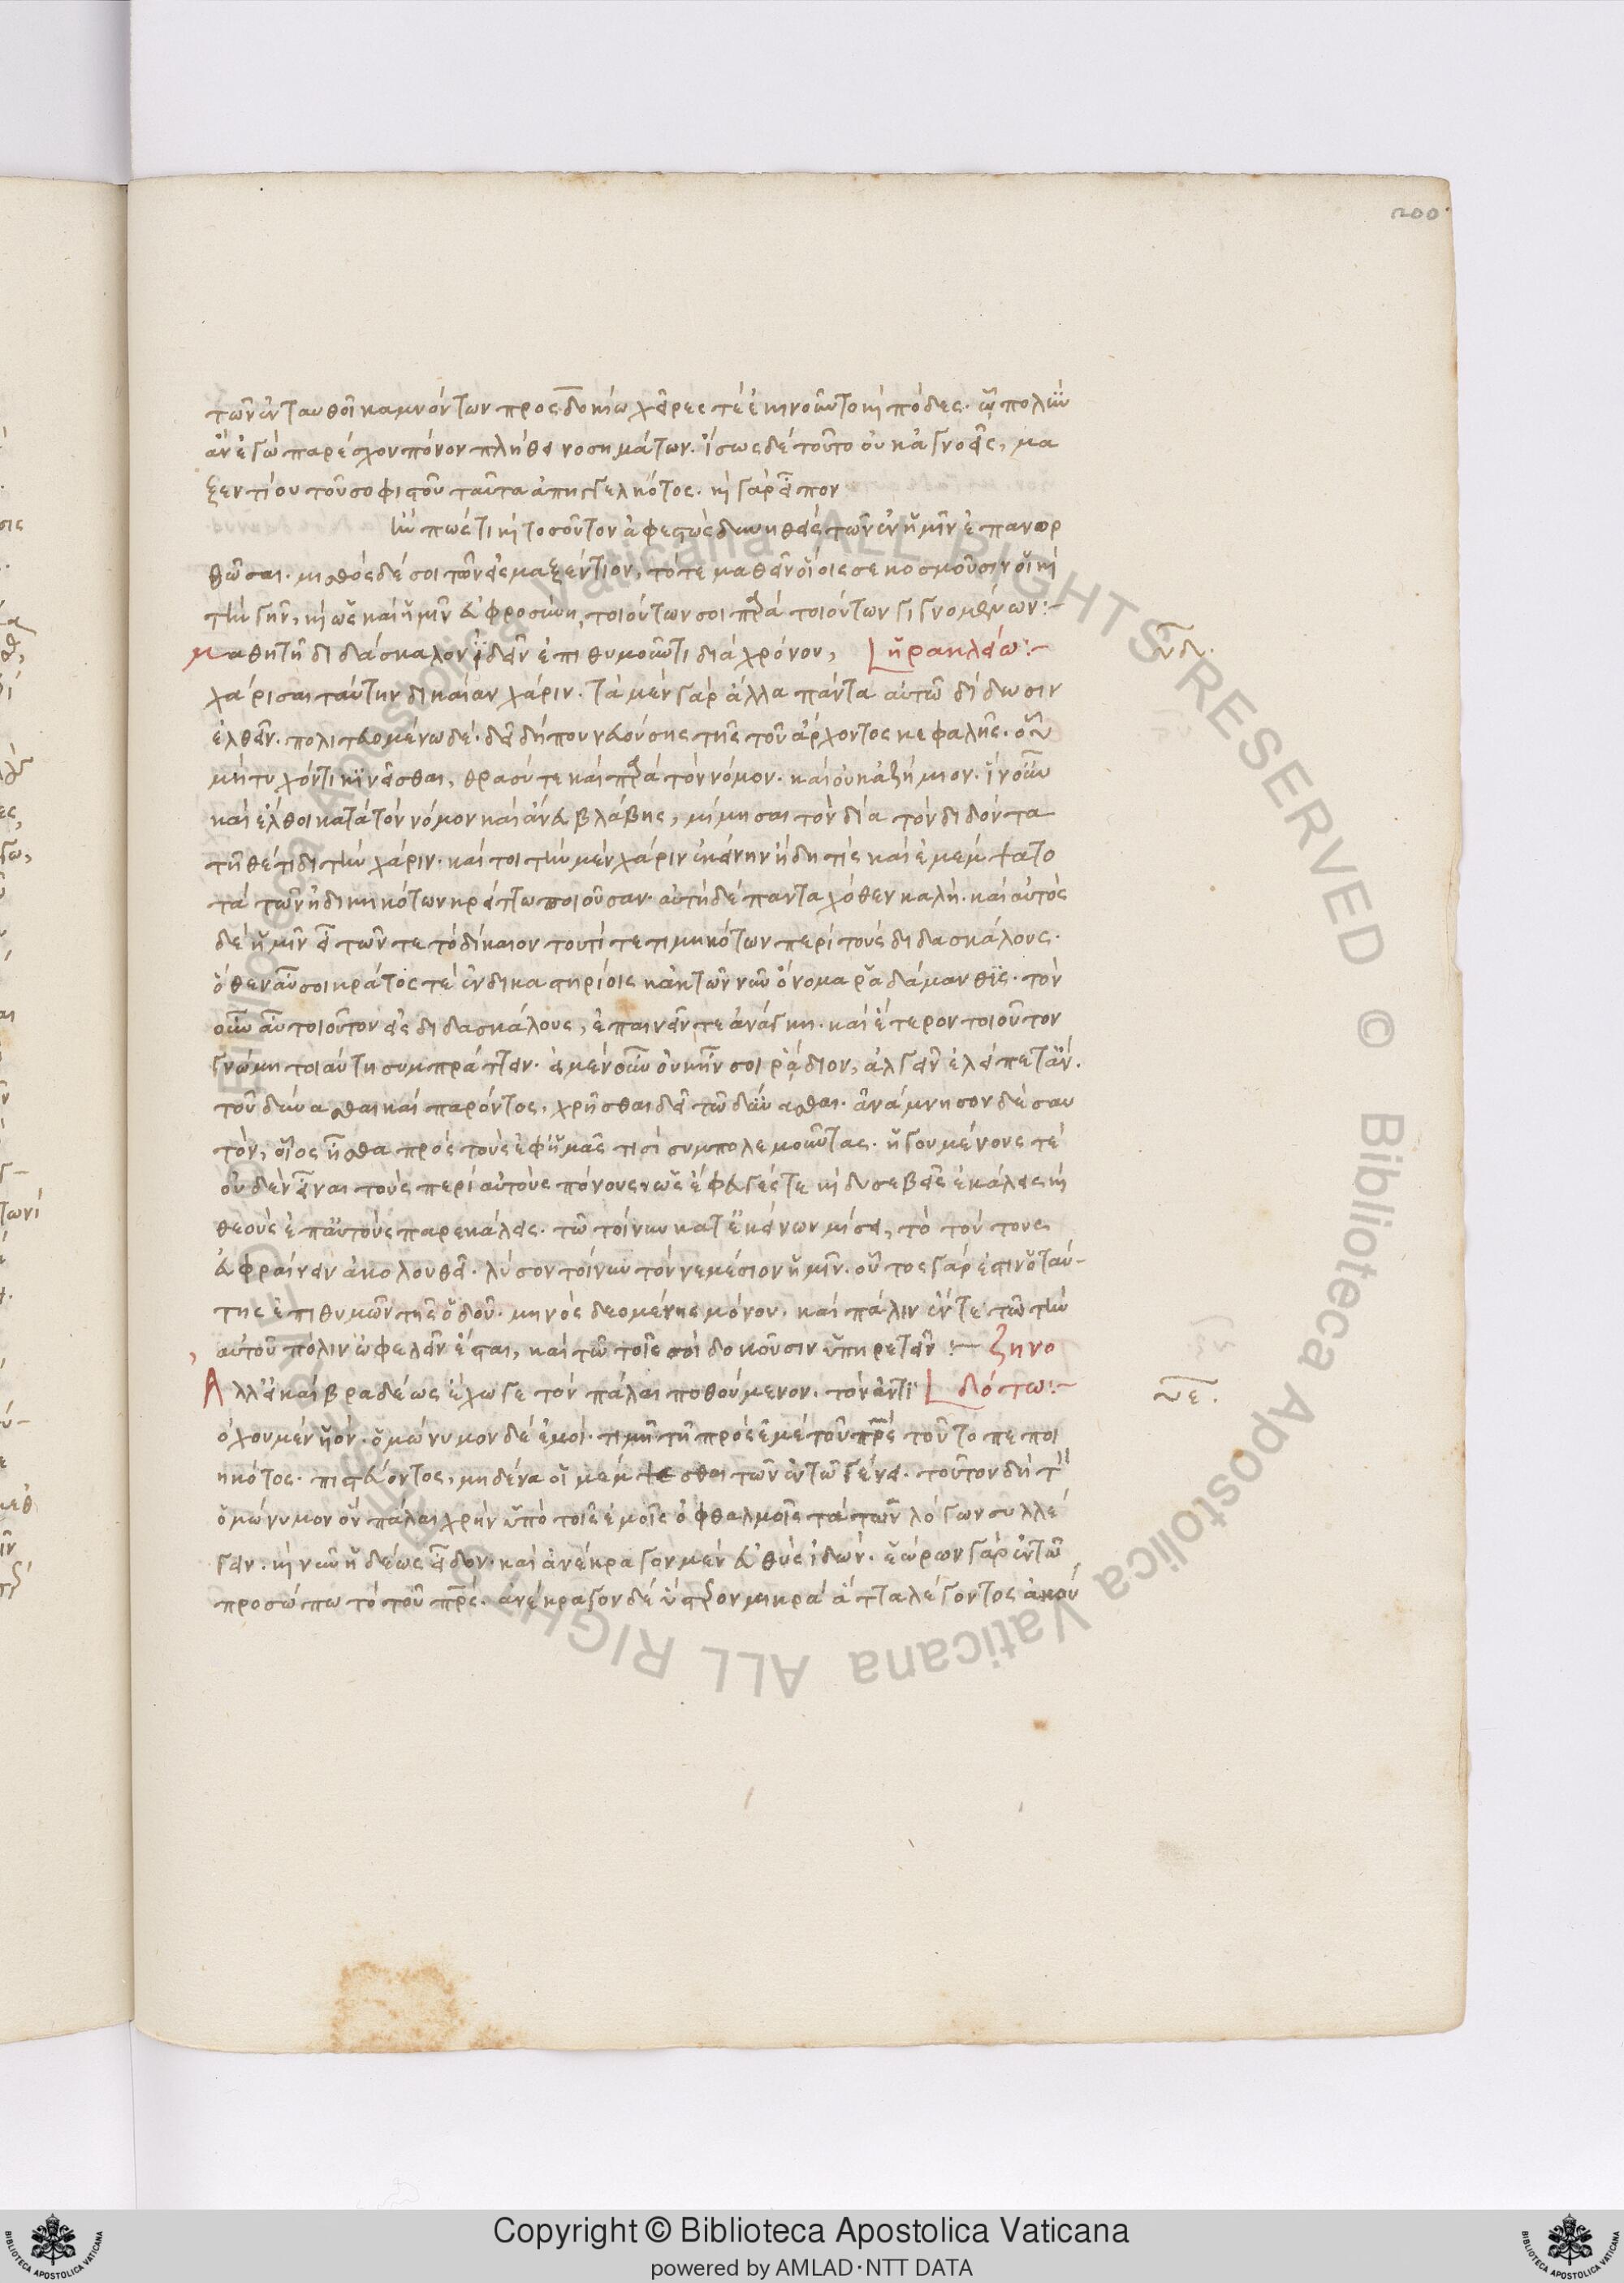 200
τῶν ἐνταυθοῖ καμνόντων προσδοκίω χεῖρες τέ ἐκινοῦντο καὶ πόδες. ὧ πολὺν
ἂν ἐγὼ παρέσχον πόνον πλήθει νοσημάτων. ἴσως δὲ τοῦτο οὐκ ἀγνοεῖς, μα
ξεντίου τοῦ σοφιστοῦ ταῦτα ἀπηγγελκότος. καὶ γὰρ εἶπον
πως ἔτι καὶ τοσοῦτον ἀφεστὼς δυνηθεὶς τῶν ἐν ἡμῖν ἐπανορ
θῶσαι. μισθὸς δέ σοι τῶν εἰς μαξέντιον, τό τε μαθεῖν οἵοις σε κοσμοῦσιν οἱ καὶ
τὴν γῆν, καὶ ὡς καὶ ἡμῖν εὐφροσύνη, τοιούτων σοι παρὰ τοιούτων γιγνομένων:-
μαθητῆ διδάσκαλον ἰδεῖν ἐπιθυμοῦντι διὰ χρόνον, ἡρακλείω:- νδ.
χάρισαι ταύτην δικαίαν χάριν. τὰ μὲν γὰρ ἄλλα πάντα αὐτῶ δίδωσιν
ἐλθεῖν. πολιτευομένω δέ. δεῖ δήπου νευούσης τῆς τοῦ ἄρχοντος κεφαλῆς. οὗ
μὴ τυχόντι κινεῖσθαι, θρασύ τε καὶ παρὰ τὸν νόμον. καὶ οὐκ ἀζήμιον. ἵν οὖν
καὶ ἔλθοι κατὰ τὸν νόμον καὶ ἄνευ βλάβης, μίμησαι τὸν δία τὸν διδόντα
τῆ θέτιδι τὴν χάριν. καίτοι τὴν μὲν χάριν ἐκείνην ἤδη τίς καὶ ἐμέμψατο
τὰ τῶν ἠδικηκότων κρείττω ποιοῦσαν. αὕτη δὲ πανταχόθεν καλή. καὶ αὐτὸς
δὲ ἡμῖν εἶ τῶν τε τὸ δίκαιον τουτί τετιμηκότων περὶ τοὺς διδασκάλους.
ὅθεν αὖ σοι κράτος τὲ ἐν δικαστηρίοις κἀκ τῶν νῦν ὄνομα ῥαδάμανθυς. τὸν
οὖν αὖ τοιοῦτον εἰς διδασκάλους, ἐπαινεῖν τε ἀνάγκη. καὶ ἕτερον τοιοῦτον
γνώμη τοιαύτη συμπράττειν. εἰ μὲν οὖν οὐκ ἦν σοι ῥάδιον, ἀλγεῖν ἐλείπετ ἄν.
τοῦ δύνασθαι καὶ παρόντος, χρῆσθαι δεῖ τῶ δύνασθαι. ἀνάμνησον δὲ σαυ
τόν, οἷος ἦσθα πρὸς τοὺς ἐφ ἡμᾶς τισί συμπολεμοῦντας. ἡγουμένους τέ
οὐδὲν εἶναι τοὺς περὶ αὐτοὺς πόνους, ὡς ἔφευγές τε καὶ δυσεβεῖς ἐκάλεις καὶ
θεοὺς ἐπ αὐτοὺς παρεκάλεις. τῶ τοίνυν κατ ἐκείνων μίσει, τὸ τούτους
εὐφραίνειν ἀκολουθεῖ. λύσον τοίνυν τὸν νεμέσιον ἡμῖν. οὗτος γάρ ἐστιν ὁ ταύ-
της ἐπιθυμῶν τῆς ὁδοῦ. μηνὸς δεομένης μόνον. καὶ πάλιν ἔν τε τῶ τὴν
αὑτοῦ πόλιν ὠφελεῖν ἔσται, καὶ τῶ τοῖς σοὶ δοκοῦσιν ὑπηρετεῖν :- ζηνο
Ἀλλ εἰ καὶ βραδέως ἔχω γε τὸν πάλαι ποθούμενον. τὸν ἀντι δότω:- νε.
όχου μὲν υἱόν. ὁμώνυμον δὲ ἐμοί. τιμῆ τῆ πρὸς ἐμὲ τοῦ πατρὸς τοῦτο πεποι
ηκότος. πιστεύοντος, μηδένα οἱ μέμψεσθαι τῶν ἐν τῶ γένει. τοῦτον δὴ τὸν
ὁμώνυμον ὃν πάλαι χρῆν ὑπὸ τοῖς ἐμοῖς ὀφθαλμοῖς τὰ τῶν λόγων συλλέ
γειν. καὶ νῦν ἡδέως εἶδον. καὶ ἀνέκραγον μὲν εὐθὺς ἰδών. ἑώρων γὰρ ἐν τῶ
προσώπω τὸ τοῦ πατρός. ἀνέκραγον δὲ ὕστερον μικρὰ ἄττα λέγοντος ἀκού
Copyright © Biblioteca Apostolica Vaticana
powered by AMLAD·NTT DATA